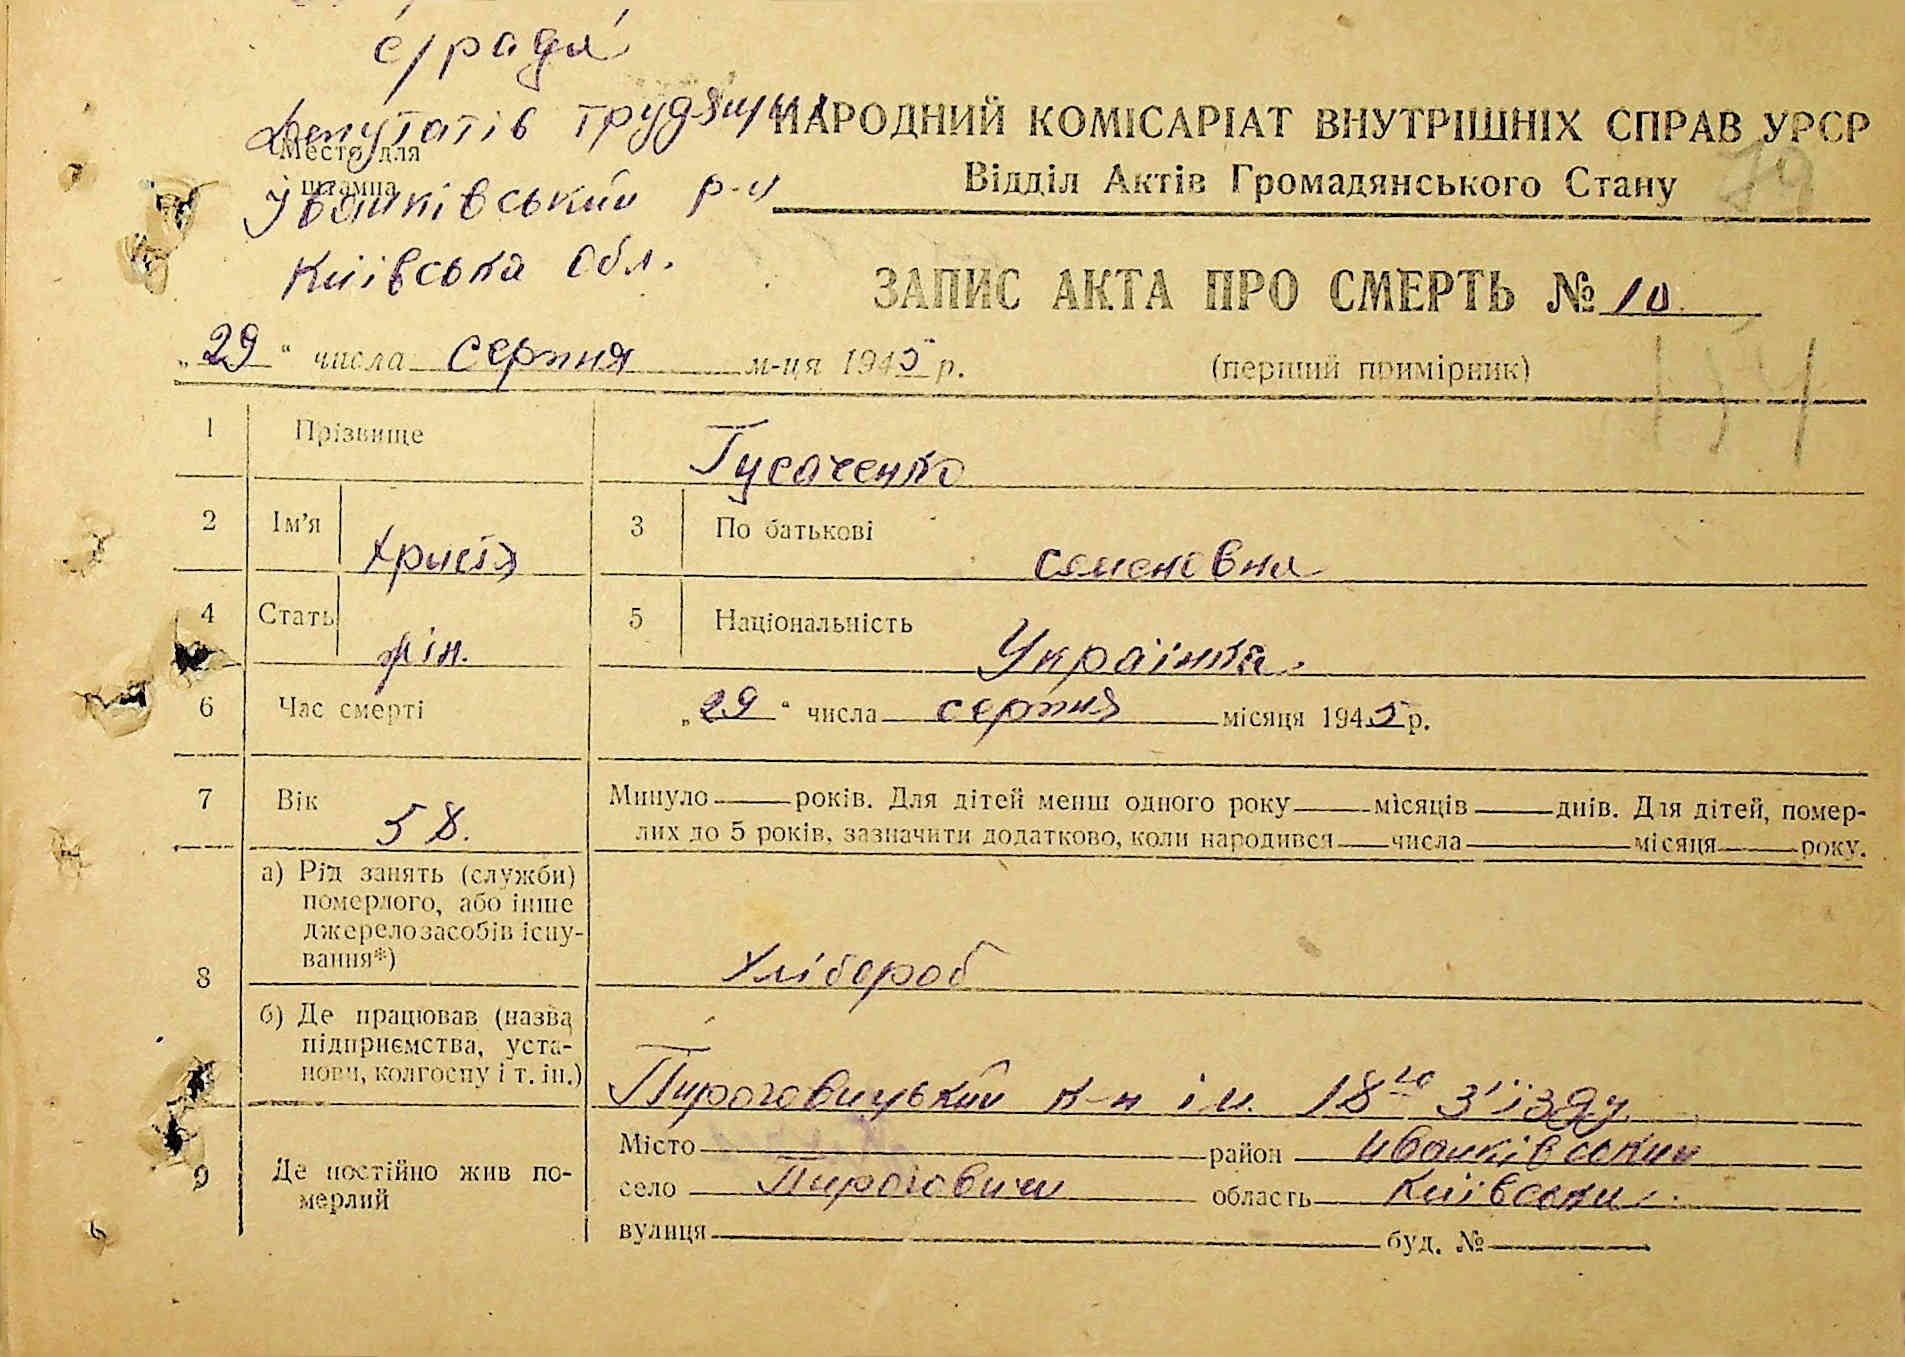 с/рада
Депутатів трудящих
НАРОДНИЙ КОМІСАРІАТ ВНУТРІШНІХ СПРАВ УРСР
Место для
штампа
Відділ Актів Громадянського Стану
79
Іванківський р-н
Київська обл.
ЗАПИС АКТА ПРО СМЕРТЬ № 10
„29“ числа серпня м-ця 1945 р.
(перший примірник)
1 Прізвище Гусаченко
2 Ім'я Христя 3 По батькові Семеновна
4 Стать жін. 5 Національність Українка.
6 Час смерті „29“ числа серпня місяця 1945 р.
7 Вік 58. Минуло років. Для дітей менш одного року місяців днів. Для дітей, помер-
лих до 5 років, зазначити додатково, коли народився числа місяця року.
8 а) Рід занять (служби)
померлого, або інше
джерело засобів існу-
вання*)
Хлібороб
б) Де працював (назва
підприємства, уста-
нови, колгоспу і т. ін.)
Пироговицький к-п ім. 18го з'їзду
9 Де постійно жив по-
мерлий
Місто район Иванківський
село Пироговичи область Київська.
вулиця буд. №